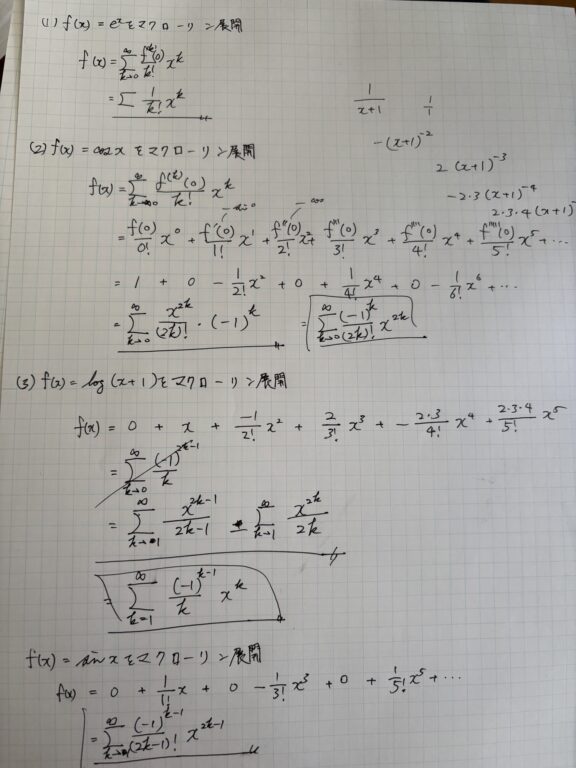 (1) f(x) = e^x をマクローリン展開
f(x) = Σ_{k→0}^{∞} f^{(k)}(0)/k! x^k
= Σ 1/k! x^k
1/(x+1) 1/1
-(x+1)^{-2}
2(x+1)^{-3}
-2·3(x+1)^{-4}
2·3·4(x+1)^{-
(2) f(x) = cos x をマクローリン展開
f(x) = Σ_{k→0}^{∞} f^{(k)}(0)/k! x^k
= f(0)/0! x^0 + f'(0)/1! x^1 + f''(0)/2! x^2 + f'''(0)/3! x^3 + f''''(0)/4! x^4 + f'''''(0)/5! x^5 + ···
= 1 + 0 - 1/2! x^2 + 0 + 1/4! x^4 + 0 - 1/6! x^6 + ···
= Σ_{k→0}^{∞} x^{2k}/(2k)! · (-1)^k = Σ_{k→0}^{∞} (-1)^k/(2k)! x^{2k}
(3) f(x) = log(x+1) をマクローリン展開
f(x) = 0 + x + -1/2! x^2 + 2/3! x^3 + - 2·3/4! x^4 + 2·3·4/5! x^5
= Σ_{k→0}^{∞} (-1)^{2k-1}/k
= Σ_{k→1}^{∞} x^{2k-1}/(2k-1) - Σ_{k→1}^{∞} x^{2k}/2k
= Σ_{k=1}^{∞} (-1)^{k-1}/k x^k
f(x) = sin x をマクローリン展開
f(x) = 0 + 1/1! x + 0 - 1/3! x^3 + 0 + 1/5! x^5 + ···
= Σ_{k→1}^{∞} (-1)^{k-1}/(2k-1)! x^{2k-1}